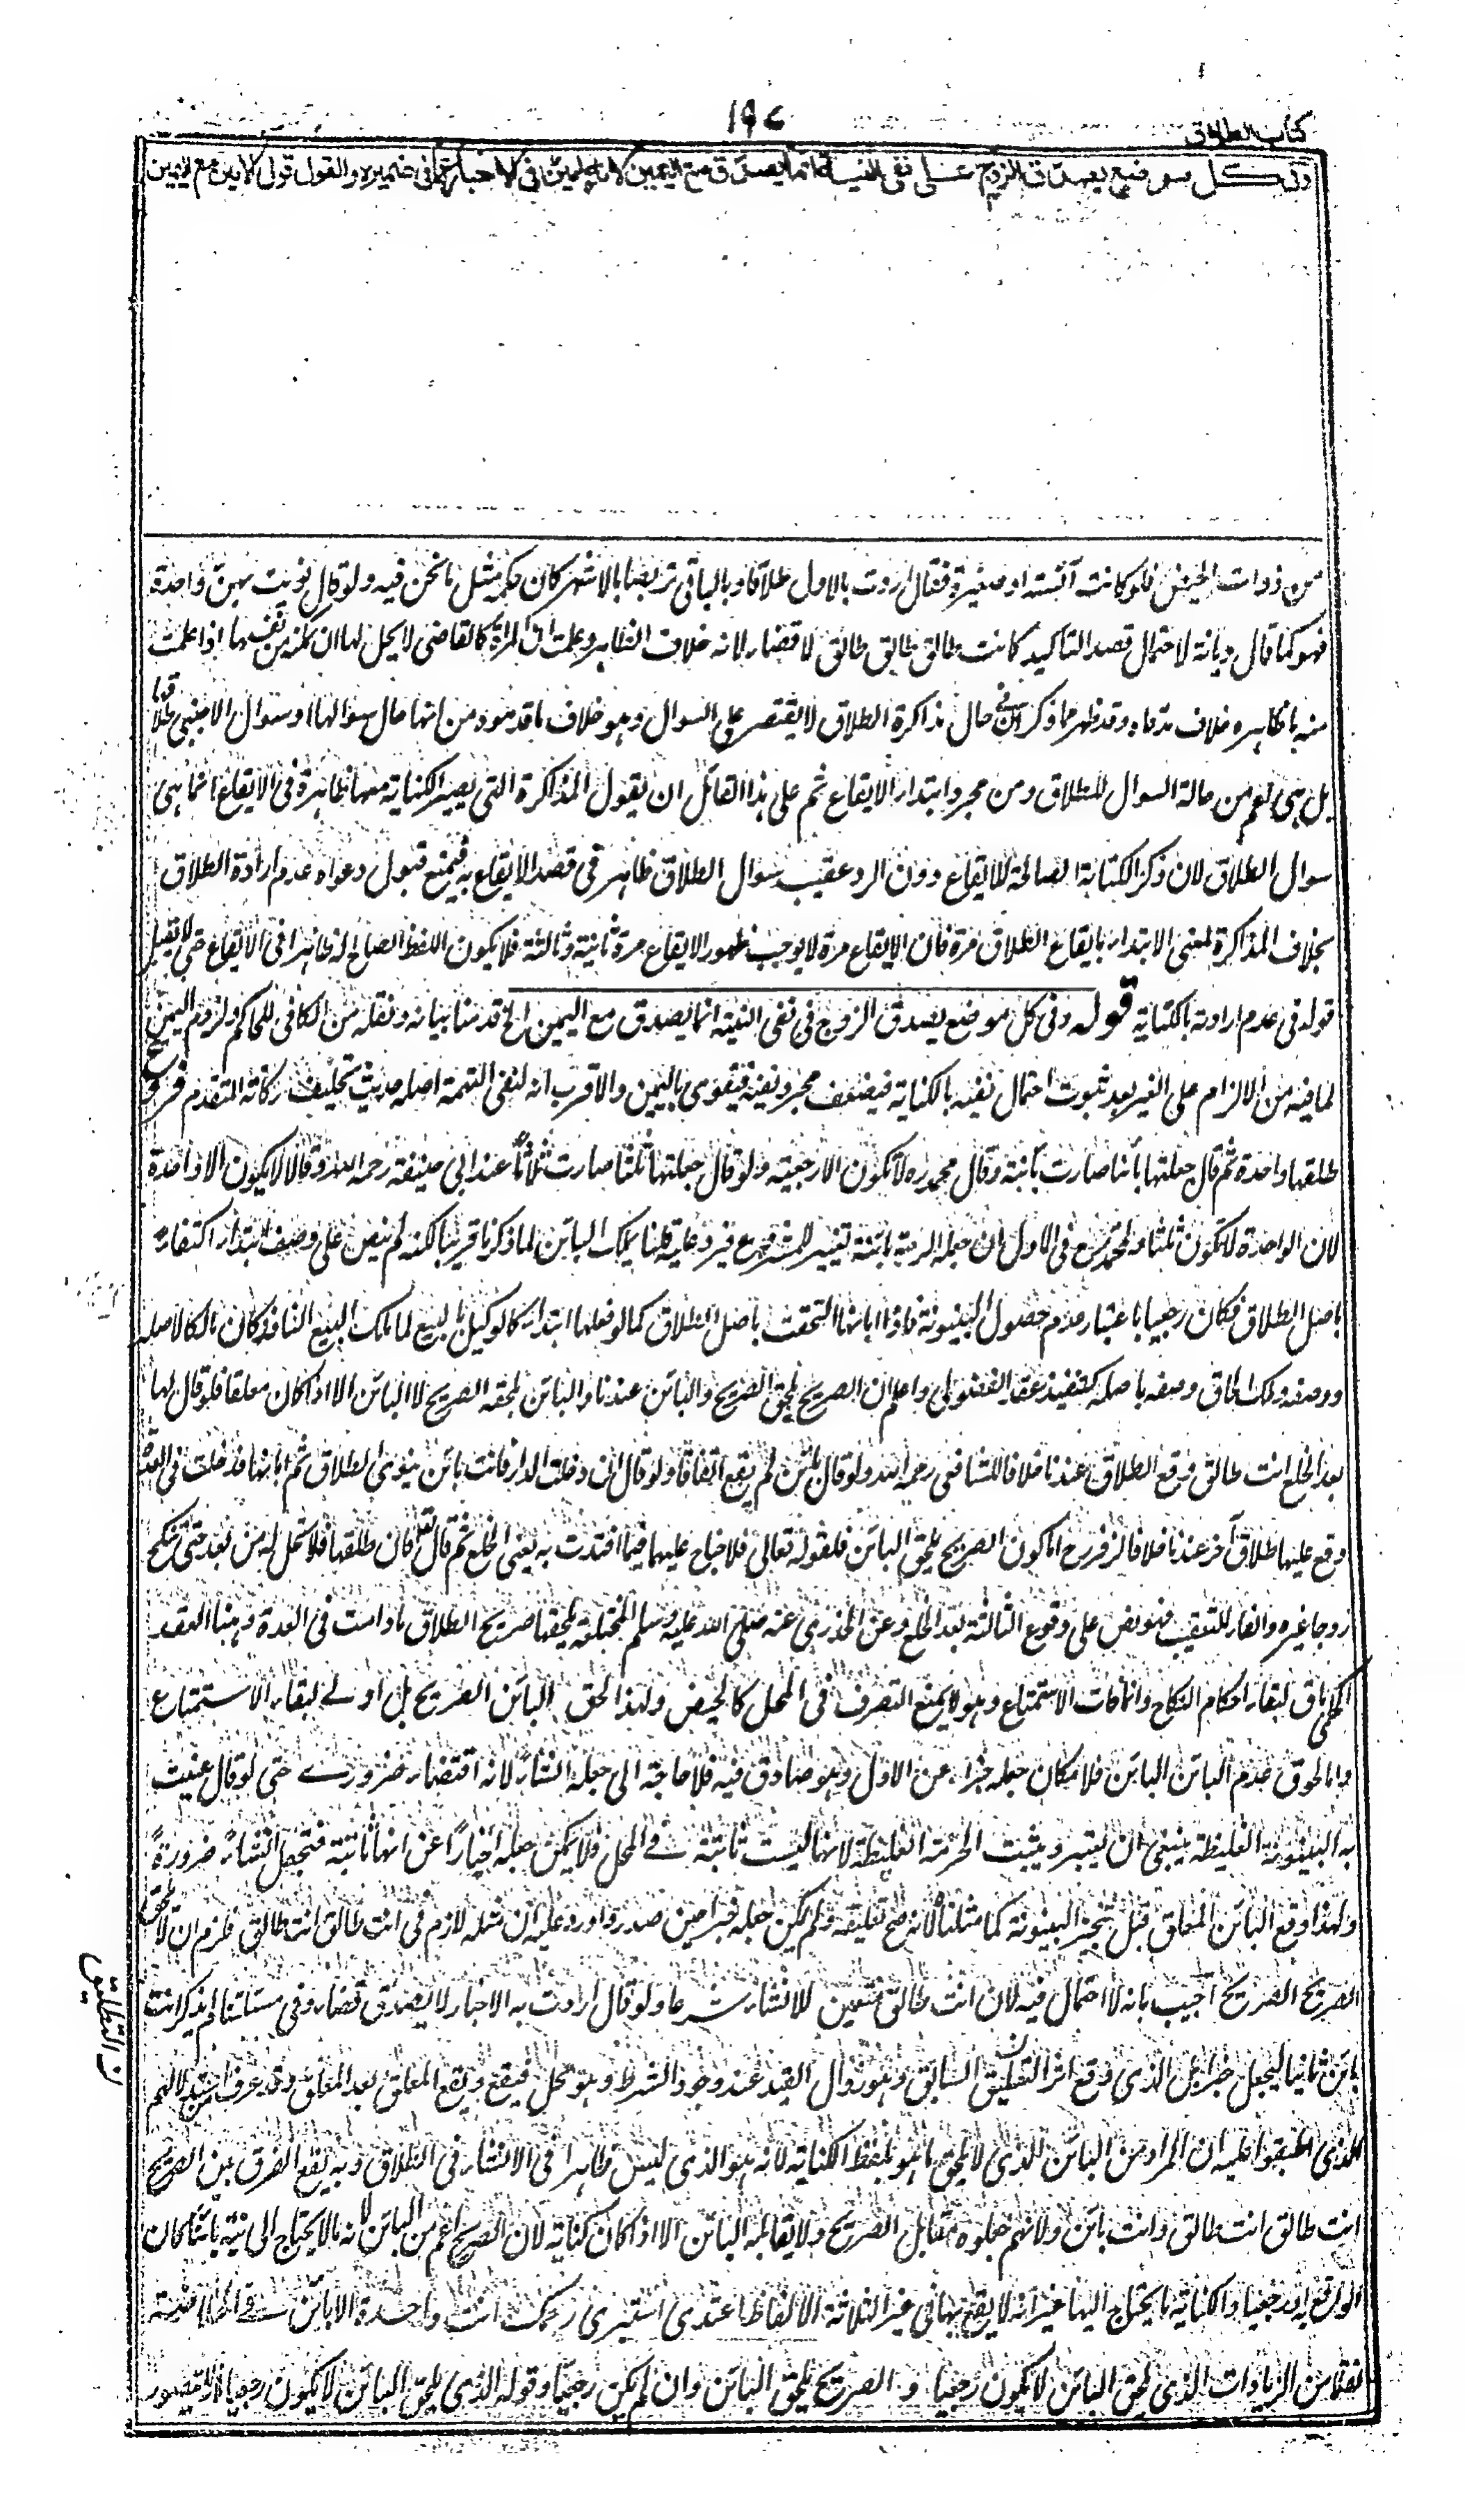 ١٩٤
كتاب الطلاق
وفى كل موضع يصدق الزوج على نفى النية انما يصدق مع اليمين لانه امين فى الاخبار عما فى ضميره والقول قول الامين مع اليمين
من ذوات الحيض فلو كانت آئسة او صغيرة فقال اردت بالاول طلاقا وبالباقى تربصا بالاشهر كان حكمه مثل ما نحن فيه ولو قال نويت بهن واحدة
فهو كما قال ديانة لاحتمال قصد التاكيد كانت طالق طالق طالق لا قضاء لانه خلاف الظاهر وعلمت ان المرأة كالقاضى لا يحل لها ان تمكنه من نفسها اذا علمت
منه ما ظاهره خلاف مدعاه وقد ظهر مما ذكر ان فى حال مذاكرة الطلاق لا يقتصر على السوال وهو خلاف ما قدموه من انها حال سوالها او سوال الاجنبى طلاقها
بل هى اعم من حالة السوال للطلاق ومن مجرد ابتداء الايقاع ثم على هذا القائل ان يقول المذاكرة التى يصير الكناية معها ظاهرة فى الايقاع انما هى
سوال الطلاق لان ذكر الكناية الصالحة للايقاع دون الرد عقيب سوال الطلاق ظاهر فى قصد الايقاع به فيمنع قبول دعواه عدم ارادة الطلاق
بخلاف المذاكرة لمعنى الابتداء بايقاع الطلاق مرة فان الايقاع مرة لا يوجب ظهور الايقاع مرة ثانية وثالثة فلا يكون اللفظ الصالح له ظاهرا فى الايقاع حتى لا يقبل
قوله فى عدم ارادته بالكناية قوله وفى كل موضع يصدق الزوج فى نفى النية انما يصدق مع اليمين الخ قدمنا بيانه ونقله من الكافى للحاكم ولزوم اليمين
لما فيه من الالزام على الغير بعد ثبوت احتمال نفيه بالكناية فيضعف مجرد نفيه فيتقوى باليمين والاقرب انه لنفى التهمة اصله حديث تحليف ركانة المتقدم فروع
طلقها واحدة ثم قال جعلتها بائنا صارت بائنة وقال محمد ره لا تكون الا رجعية ولو قال جعلتها ثلثا صارت ثلاثا عند ابى حنيفة رحمه الله وقالا لا يكون الا واحدة
لان الواحدة لا تكون ثلثا ولمحمد رح فى الاول ان جعله الرجعية بائنة تغيير للمشروع فيرد عليه قلنا يملك البائن لما ذكرنا قريبا لكنه لم ينص على وصف ابتداء اكتفاء
باصل الطلاق فكان رجعيا باعتبار عدم حصول البينونة فاذا ابانها التحقت باصل الطلاق كما لو فعلها ابتداء كالوكيل بالبيع لما ملك البيع النافذ كان مالكا لاصله
ووصفه وملك الحاق وصفه باصله كتنفيذ عقد الفضولى واعلم ان الصريح يلحق الصريح والبائن عندنا والبائن يلحقه الصريح لا البائن الا اذا كان معلقا فلو قال لها
بعد الخلع انت طالق وقع الطلاق عندنا خلافا للشافعى رحمه الله ولو قال بائن لم يقع اتفاقا ولو قال ان دخلت الدار فانت بائن ينوى الطلاق ثم ابانها فدخلت فى العدة
وقع عليها طلاق آخر عندنا خلافا لزفر رح اما كون الصريح يلحق البائن فلقوله تعالى فلا جناح عليهما فيما افتدت به يعنى الخلع ثم قال تعالى فان طلقها فلا تحل له من بعد حتى تنكح
زوجا غيره والفاء للتعقيب فهو نص على وقوع الثالثة بعد الخلع وعن الخدرى عنه صلى الله عليه وسلم المختلعة يلحقها صريح الطلاق ما دامت فى العدة وهنا العقد
الحكمى باق لبقاء احكام النكاح وانما فات الاستمتاع وهو لا يمنع التصرف فى المحل كالحيض ولهذا لحق البائن الصريح بل اولى لبقاء الاستمتاع
واما لحوق عدم البائن البائن فلامكان جعله خبرا عن الاول وهو صادق فيه فلا حاجة الى جعله انشاء لانه اقتضاء ضرورى حتى لو قال عنيت
به البينونة الغليظة ينبغى ان يعتبر ويثبت الحرمة الغليظة لانها ليست ثابتة فى المحل فلا يمكن جعله اخبارا عن انها ثابتة فتجعل انشاء ضرورة
ولهذا وقع البائن المعلق قبل تنجيز البينونة كما مثلنا لانه صح تعليقه ولم يمكن جعله خبرا حين صدر واورد عليه ان مثله لازم فى انت طالق انت طالق فلزم ان لا يلحق
الصريح الصريح اجيب بانه لا احتمال فيه لان انت طالق متعين للانشاء شرعا ولو قال اردت به الاخبار لا يصدق قضاء وفى مسئلتنا لم يذكر انت
بائن ثانيا ليجعل خبرا بل الذى وقع اثر التعليق السابق وهو زوال القيد عند وجود الشرط وهو محل فيقع ويقع المعلق بعد المعلق وقد عرف من تعليلهم
ن التطليق
الذى اطبقوا عليه ان المراد من البائن الذى لا يلحق ما هو بلفظ الكناية لانه هو الذى ليس ظاهرا فى الانشاء فى الطلاق وبه يقع الفرق بين الصريح
انت طالق انت طالق وانت بائن ولانهم جعلوه مقابل الصريح ولا يقابله البائن الا اذا كان كناية لان الصريح اعم من البائن لانه ما لا يحتاج الى نية بائنا كان
الواقع به او رجعيا والكناية ما يحتاج اليها غير انه لا يقع بها فى غير الثلاثة الالفاظ اعتدى استبرى رحمك انت واحدة الا بائن فى الخلاصة
نقلا من الزيادات الذى يلحق البائن لا يكون رجعيا و الصريح يلحق البائن وان لم يكن رجعيا وقوله الذى يلحق البائن لا يكون رجعيا